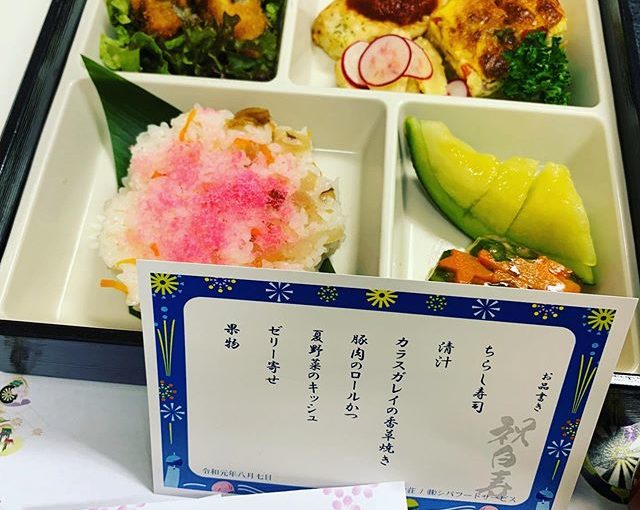 お品書き
祝白寿
ちらし寿司
清汁
カラスガレイの香草焼き
豚肉のロールかつ
夏野菜のキッシュ
ゼリー寄せ
果物
令和元年八月七日
荘 / ㈱シバフードサービス